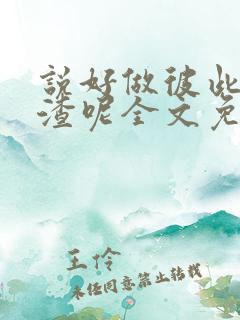 說好做彼此
渣呢全文免
王伶
未经同意禁止转载